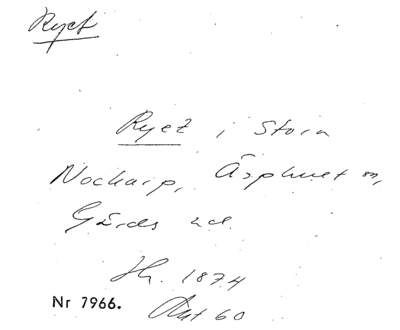 Ryet
Ryet i Stora
Nockarp, Äsphult sn,
Gärds hd.
Hr. 1874
Nr 7966.
Akt 60